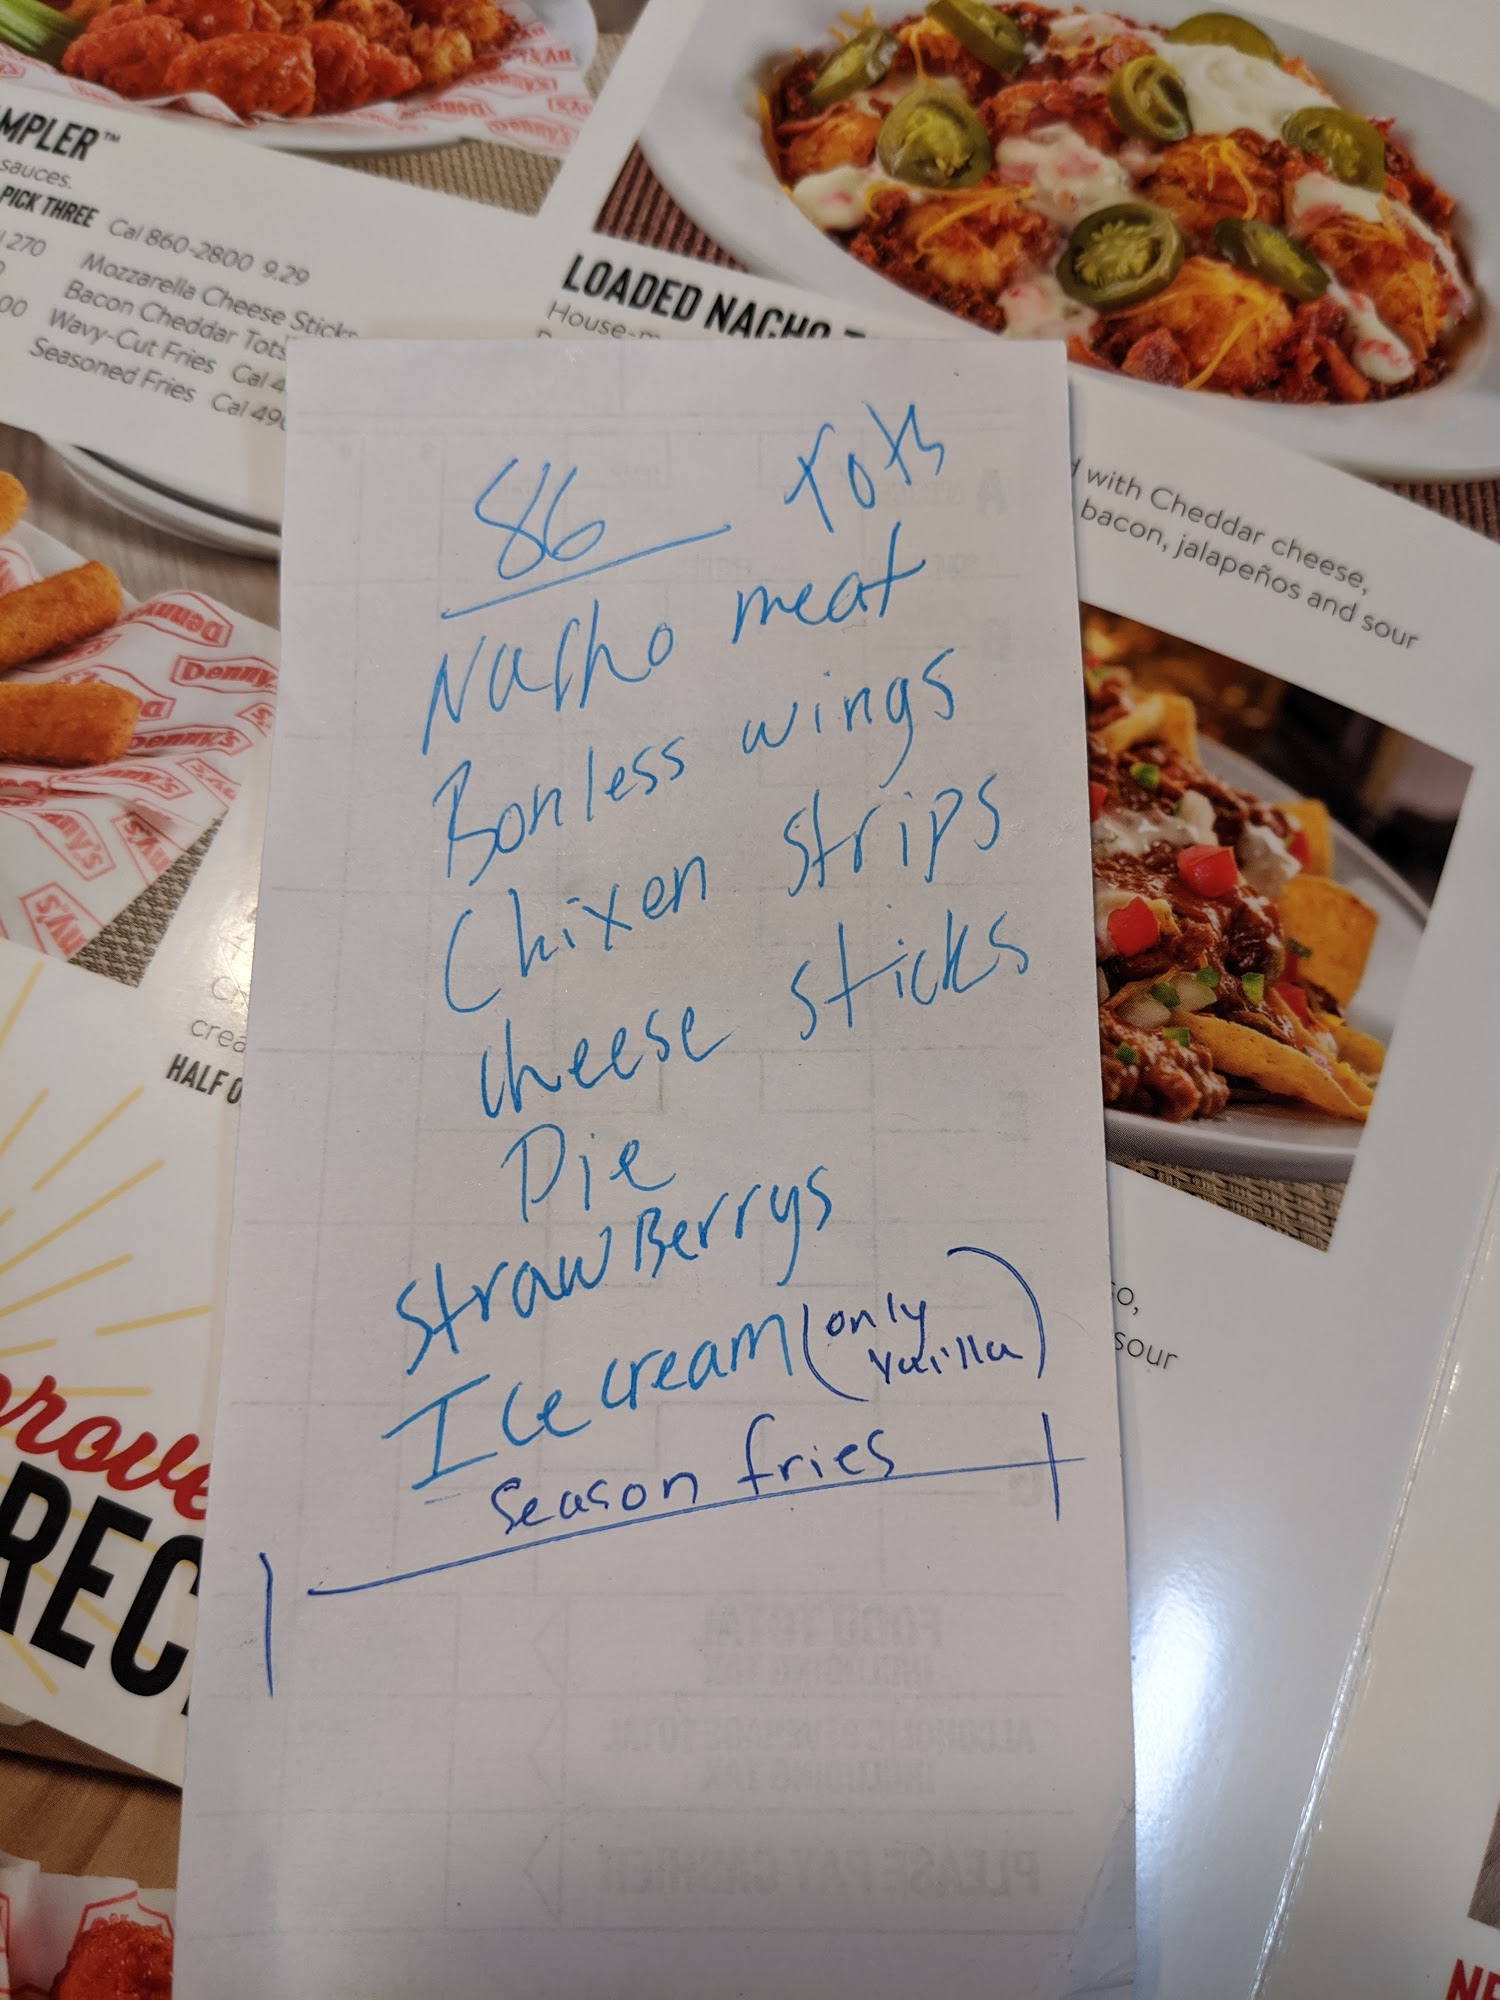 MPLER™
sauces.
PICK THREE Cal 860-2800 9.29
270
Mozzarella Cheese Sticks
Bacon Cheddar Tots
00 Wavy-Cut Fries Cal 4
Seasoned Fries Cal 490
LOADED NACHO T
House-m
with Cheddar cheese,
bacon, jalapeños and sour
86 Tots
Nacho meat
Bonless wings
Chixen strips
cheese sticks
Pie
strawBerrys
Ice cream (only
vailla)
Season fries
Denny's
Denny's
Denny's
crea
HALF O
so,
sour
prove
REC
FOOD TOTAL
INCLUDING TAX
ALCOHOLIC BEVERAGE TOTAL
INCLUDING TAX
PLEASE PAY CASHIER
NE